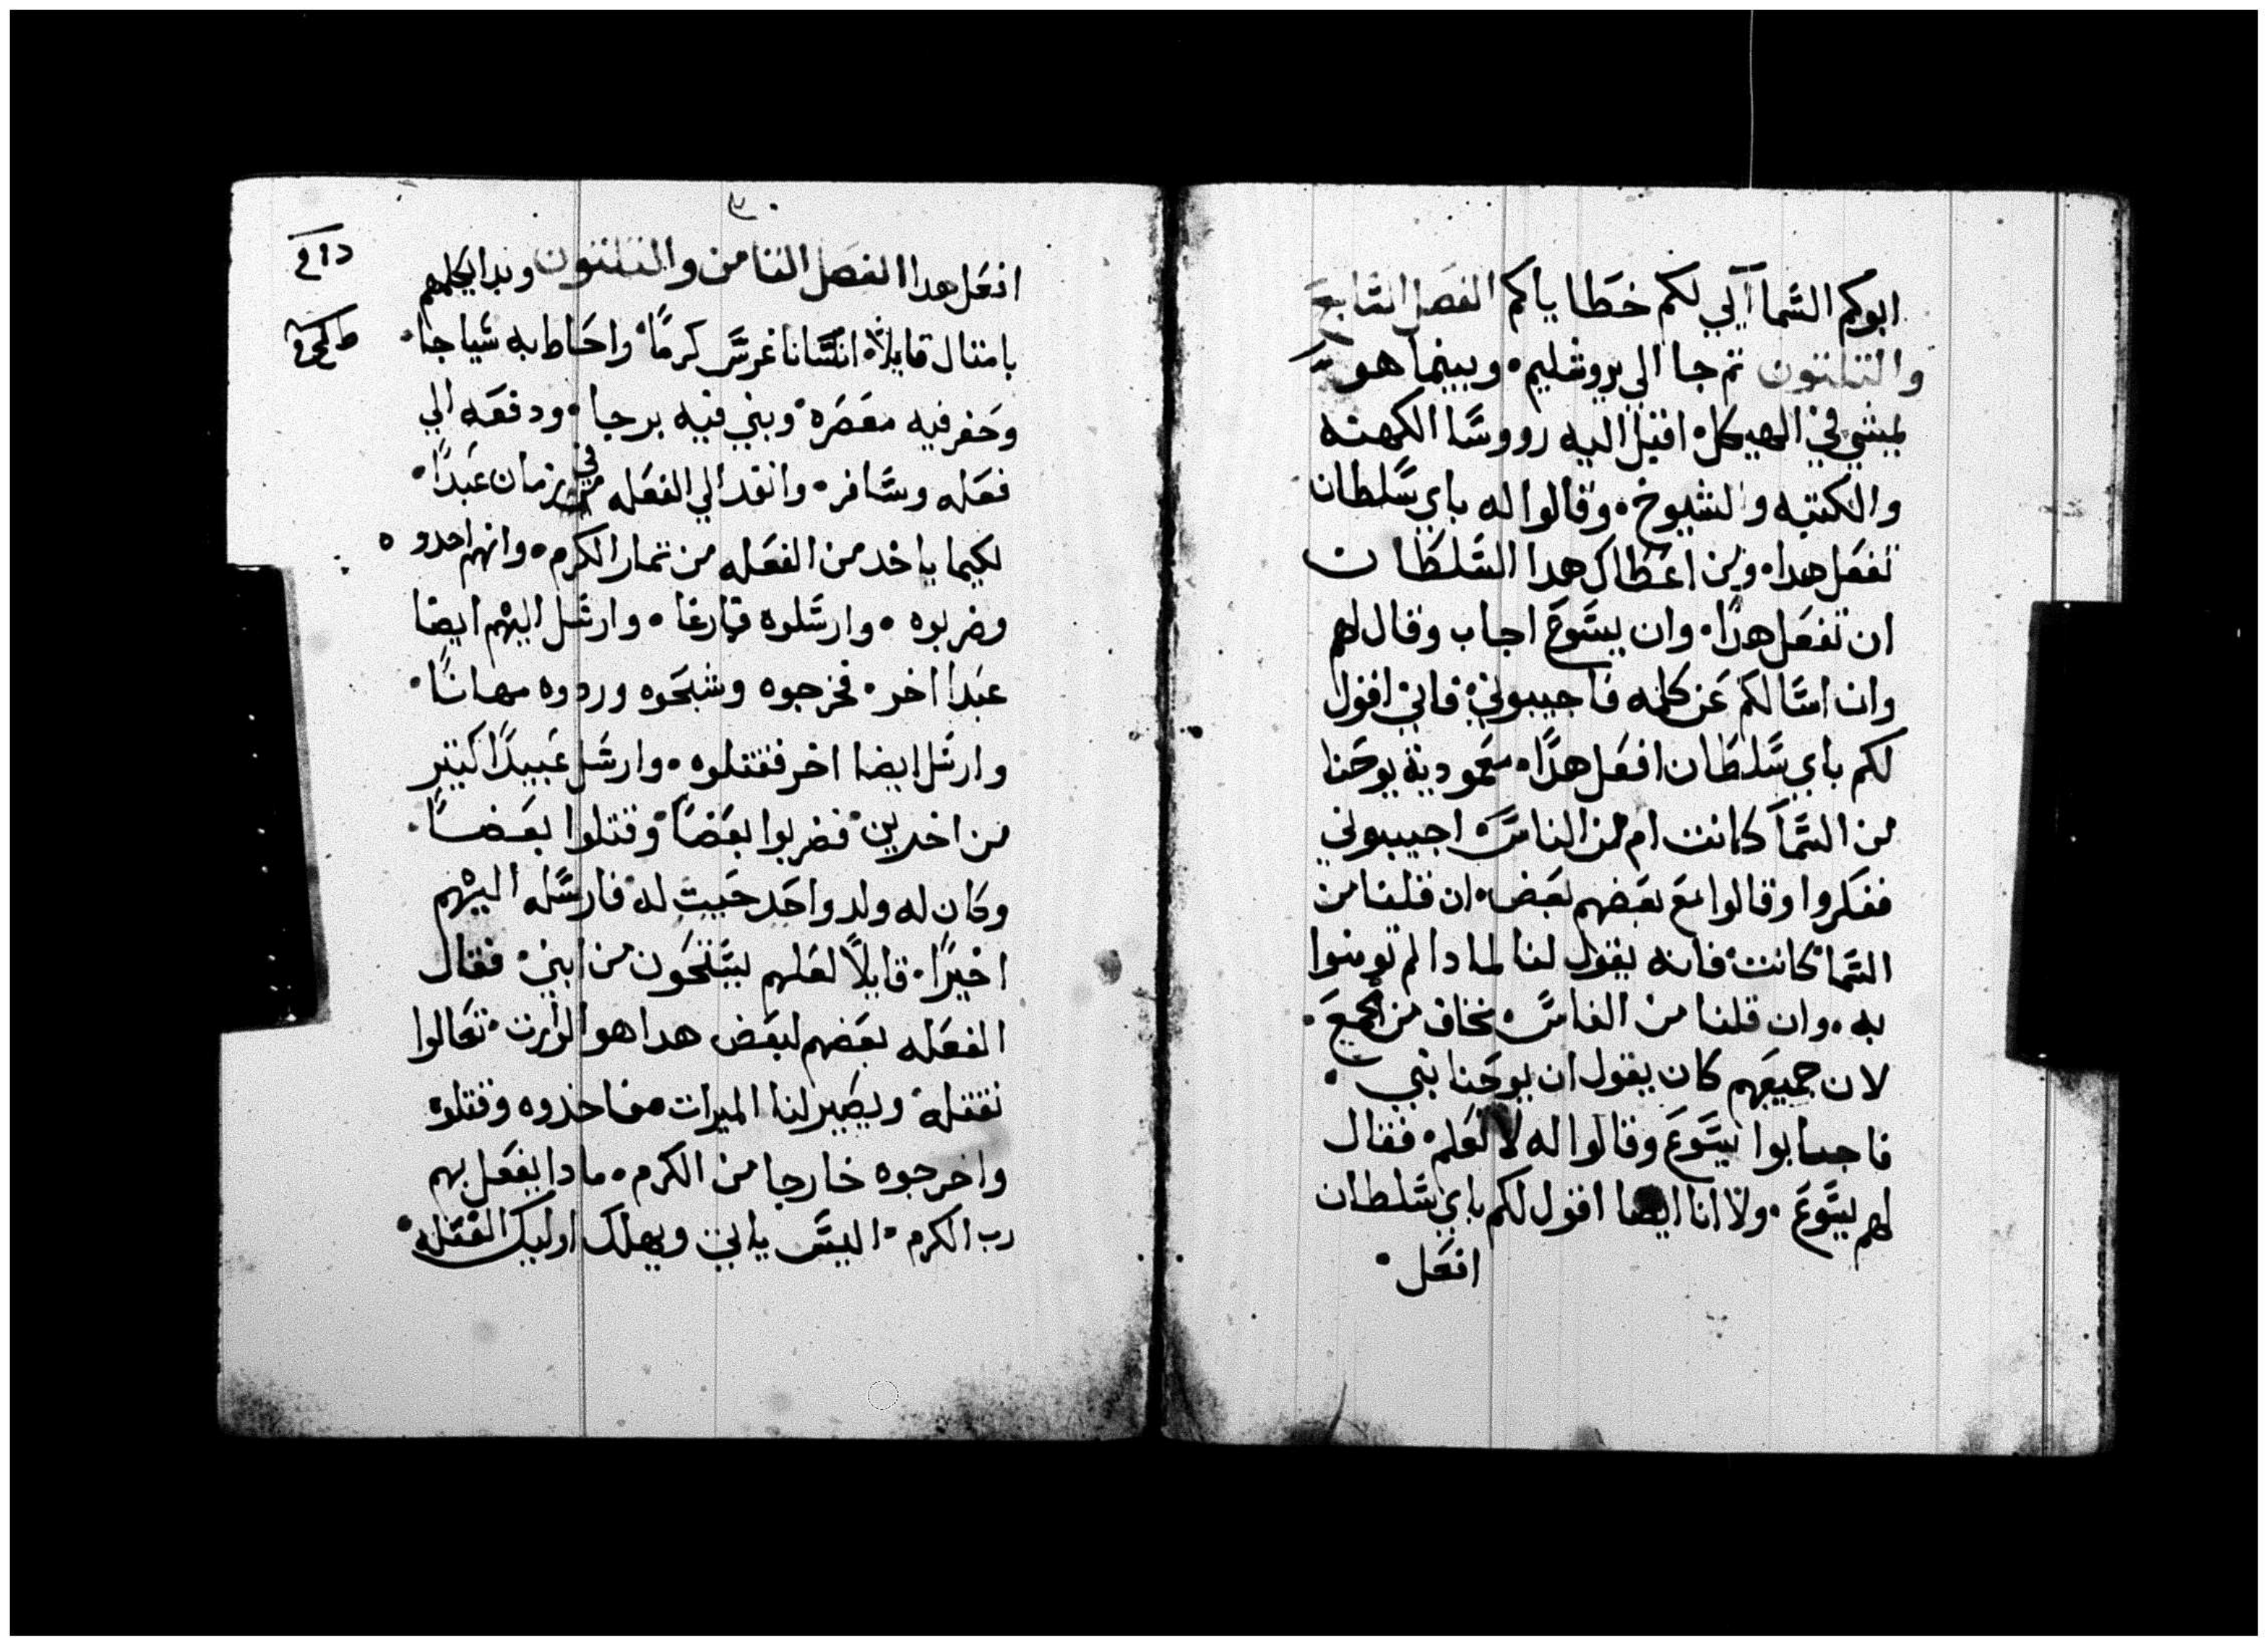 ابوكم السما آلي لكم خطاياكم الفصل السابع
والتلتون تم جا الي يروشليم • وبينما هو
يمشي في الهيكل • اقبل اليه رووسا الكهنه
والكتبه والشيوخ • وقالوا له باي سلطان
تفعل هدا • ومن اعطاك هدا السلطان
ان تفعل هدا • وان يسوع اجاب وقال لهم
وانا اسالكم عن كلمه فاجيبوني • فاني اقول
لكم باي سلطان افعل هدا • معمودية يوحنا
من السما كانت ام من الناس • اجيبوني
ففكروا وقالوا مع بعضهم بعض • ان قلنا من
السما كانت • فانه يقول لنا لمادا لم تومنوا
به • وان قلنا من الناس • نخاف من الجمع •
لان جميعهم كان يقول ان يوحنا نبي •
فاجابوا يسوع وقالوا له لا نعلم • فقال
لهم يسوع • ولا انا ايضا اقول لكم باي سلطان
افعل •
٣٠
افعل هدا الفصل التامن والتلتون وبدا يكلمهم
بامتال قايلا • انسانا غرس كرما • واحاط به سياجا •
وحفر فيه معصره • وبني فيه برجا • ودفعه الي
فعله وسافر • وانفد الي الفعله في زمان عبدا •
لكيما ياخد من الفعله من تمار الكرم • وانهم اخدوه
وضربوه • وارسلوه فارغا • وارسل اليهم ايضا
عبدا اخر • فخرجوه وشبحوه وردوه مهانا •
وارسل ايضا اخر فقتلوه • وارسل عبيدا كتير
من اخدين • فضربوا بعضا • وقتلوا بعضا •
وكان له ولد واحد حبيب له • فارسله اليهم
اخيرا • قايلا لعلهم يستحون من ابني • فقال
الفعله بعضهم لبعض هدا هو الوارت • تعالوا
نقتله • ويصير لنا الميرات • فاخدوه وقتلوه
واخرجوه خارجا من الكرم • مادا يفعل بهم
رب الكرم • اليس ياتي ويهلك اوليك الفعله •